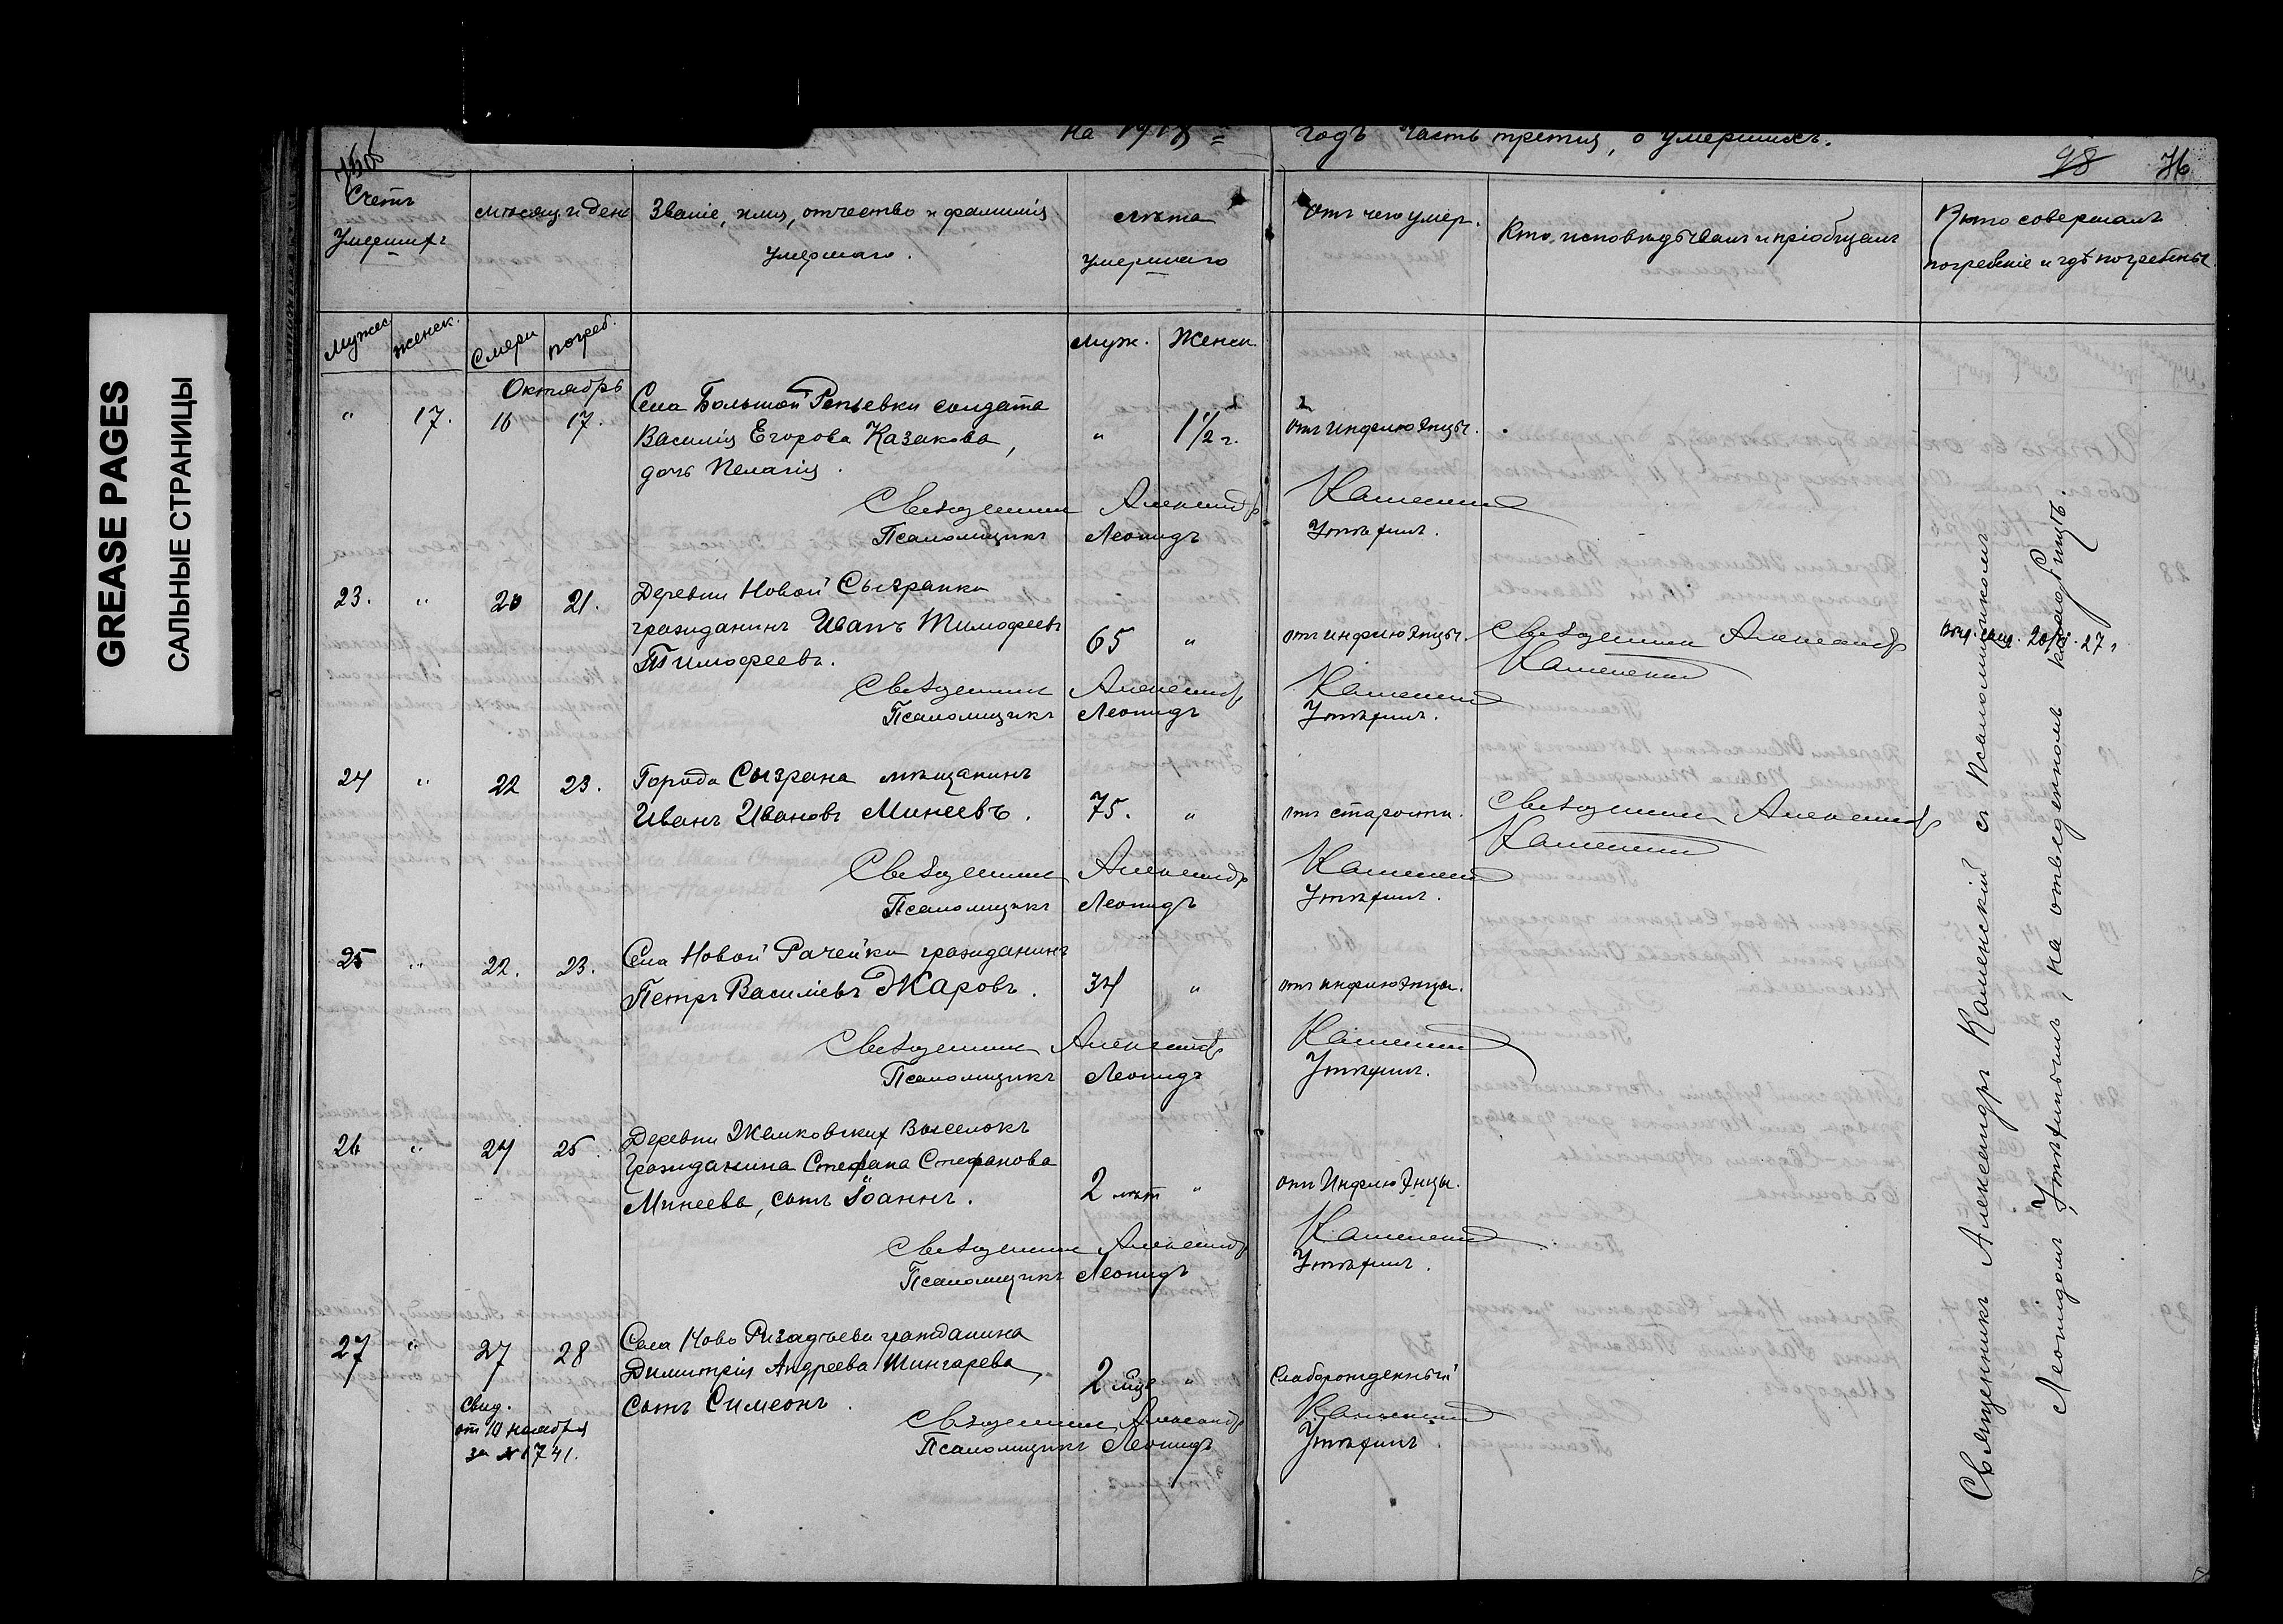 GREASE PAGES
САЛЬНЫЕ СТРАНИЦЫ
на 1918 годъ часть третія, о умершихъ.
75об
98 76
Счетъ умершихъ
мѣсяц. и день
Званіе, имя, отчество и фамилія умершаго.
лѣта умершаго
отъ чего умер.
Кто исповѣдывалъ и пріобщалъ
Кто совершалъ погребеніе и гдѣ погребены
Мужес. женск. Смерти погреб. Муж. Женск.
Октябрь
" 17. 16 17. Села Большой Репьевки солдата
Василія Егорова Казакова, " 1 1/2 г. отъ инфлюэнцы.
дочь Пелагія.
Священникъ Александръ Каменскій
Псаломщикъ Леонидъ Утѣхинъ.
23. " 20 21. Деревни Новой Сызранки
гражданинъ Иванъ Тимофеевъ
Тимофеевъ. 65 " отъ инфлюэнцы. Священникъ Александръ Каменскій
20 27
Священникъ Александръ Каменскій
Псаломщикъ Леонидъ Утѣхинъ.
24 " 22 23. Города Сызрана мѣщанинъ
Иванъ Ивановъ Минеевъ. 75. " отъ старости. Священникъ Александръ Каменскій
Священникъ Александръ Каменскій
Псаломщикъ Леонидъ Утѣхинъ.
25 " 22. 23. Села Новой Рачейки гражданинъ
Петръ Василіевъ Жаровъ. 34 " отъ инфлюэнцы.
Священникъ Александръ Каменскій
Псаломщикъ Леонидъ Утѣхинъ.
26 " 24 25. Деревни Жемковскихъ Выселокъ
Гражданина Стефана Стефанова
Минеева, сынъ Іоаннъ. 2 лѣт " отъ Инфлюэнцы.
Священникъ Александръ Каменскій
Псаломщикъ Леонидъ Утѣхинъ.
27 " 27 28 Села Ново Ризадѣева гражданина
Димитрія Андреева Шингарева, 2 мѣс " Слаборожденный
Сынъ Симеонъ.
Свид.
от 10 ноября
за № 1741.
Священникъ Александръ Каменскій
Псаломщикъ Леонидъ Утѣхинъ.
Священникъ Александръ Каменскій съ Псаломщикомъ
Леонидомъ Утѣхинымъ, на отведенномъ кладбищѣ.